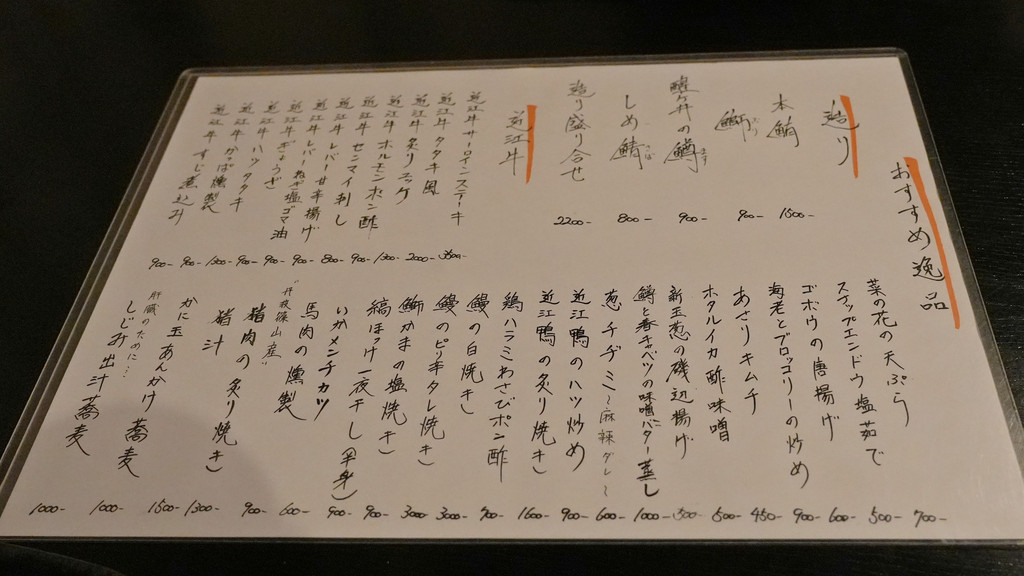 おすすめ逸品
造り
本鮪 1500-
鰤 ぶり 900-
醒ヶ井の鱒 ます 900-
しめ鯖 さば 800-
造り盛り合せ 2200-
近江牛
近江牛サーロインステーキ 3500-
近江牛タタキ風 2000-
近江牛炙りユッケ 1300-
近江牛ホルモンポン酢 900-
近江牛センマイ刺し 800-
近江牛レバー甘辛揚げ 900-
近江牛レバーねぎ塩ゴマ油 900-
近江牛ぎょうざ 900-
近江牛ハツタタキ 1300-
近江牛かっぱ燻製 900-
近江牛すじ煮込み 900-
菜の花の天ぷら 700-
スナップエンドウ塩茹で 500-
ゴボウの唐揚げ 600-
海老とブロッコリーの炒め 900-
あさりキムチ 450-
ホタルイカ酢味噌 500-
新玉葱の磯辺揚げ 500-
鱒と春キャベツの味噌バター蒸し 1000-
葱チヂミ〜麻辣ダレ〜 600-
近江鴨のハツ炒め 900-
近江鴨の炙り焼き 1600-
鶏ハラミわさびポン酢 700-
鰻の白焼き 3000-
鰻のピリ辛タレ焼き 3000-
鰤かまの塩焼き 900-
縞ほっけ一夜干し(半身) 900-
いかメンチカツ 600-
馬肉の燻製 900-
"丹波篠山産"
猪肉の炙り焼き 1300-
猪汁 1500-
かに玉あんかけ蕎麦 1000-
肝臓のために…
しじみ出汁蕎麦 1000-